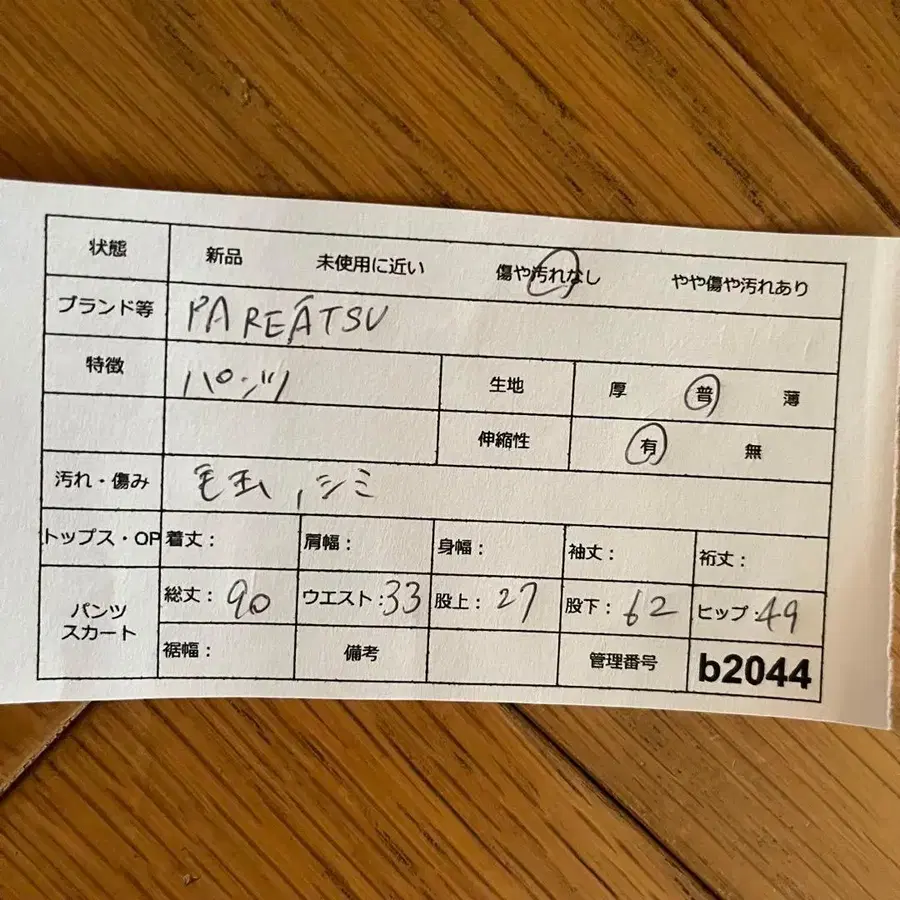 状態 新品 未使用に近い 傷や汚れなし やや傷や汚れあり
ブランド等 PAREATSU
特徴 パンツ 生地 厚 普 薄
伸縮性 有 無
汚れ・傷み 毛玉,シミ
トップス・OP 着丈: 肩幅: 身幅: 袖丈: 裄丈:
パンツ スカート 総丈:90 ウエスト:33 股上:27 股下:62 ヒップ:49
裾幅: 備考 管理番号 b2044